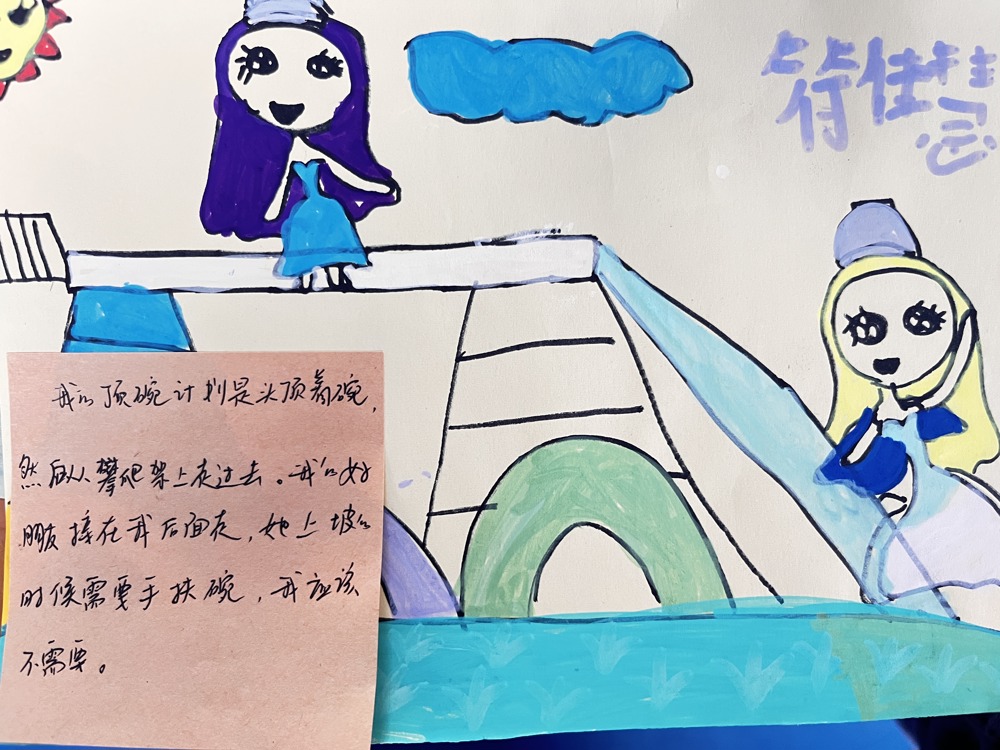 符佳慧
我的顶碗计划是头顶着碗，
然后从攀爬架上走过去。我的好
朋友接在我后面走，她上坡的
时候需要手扶碗，我应该
不需要。